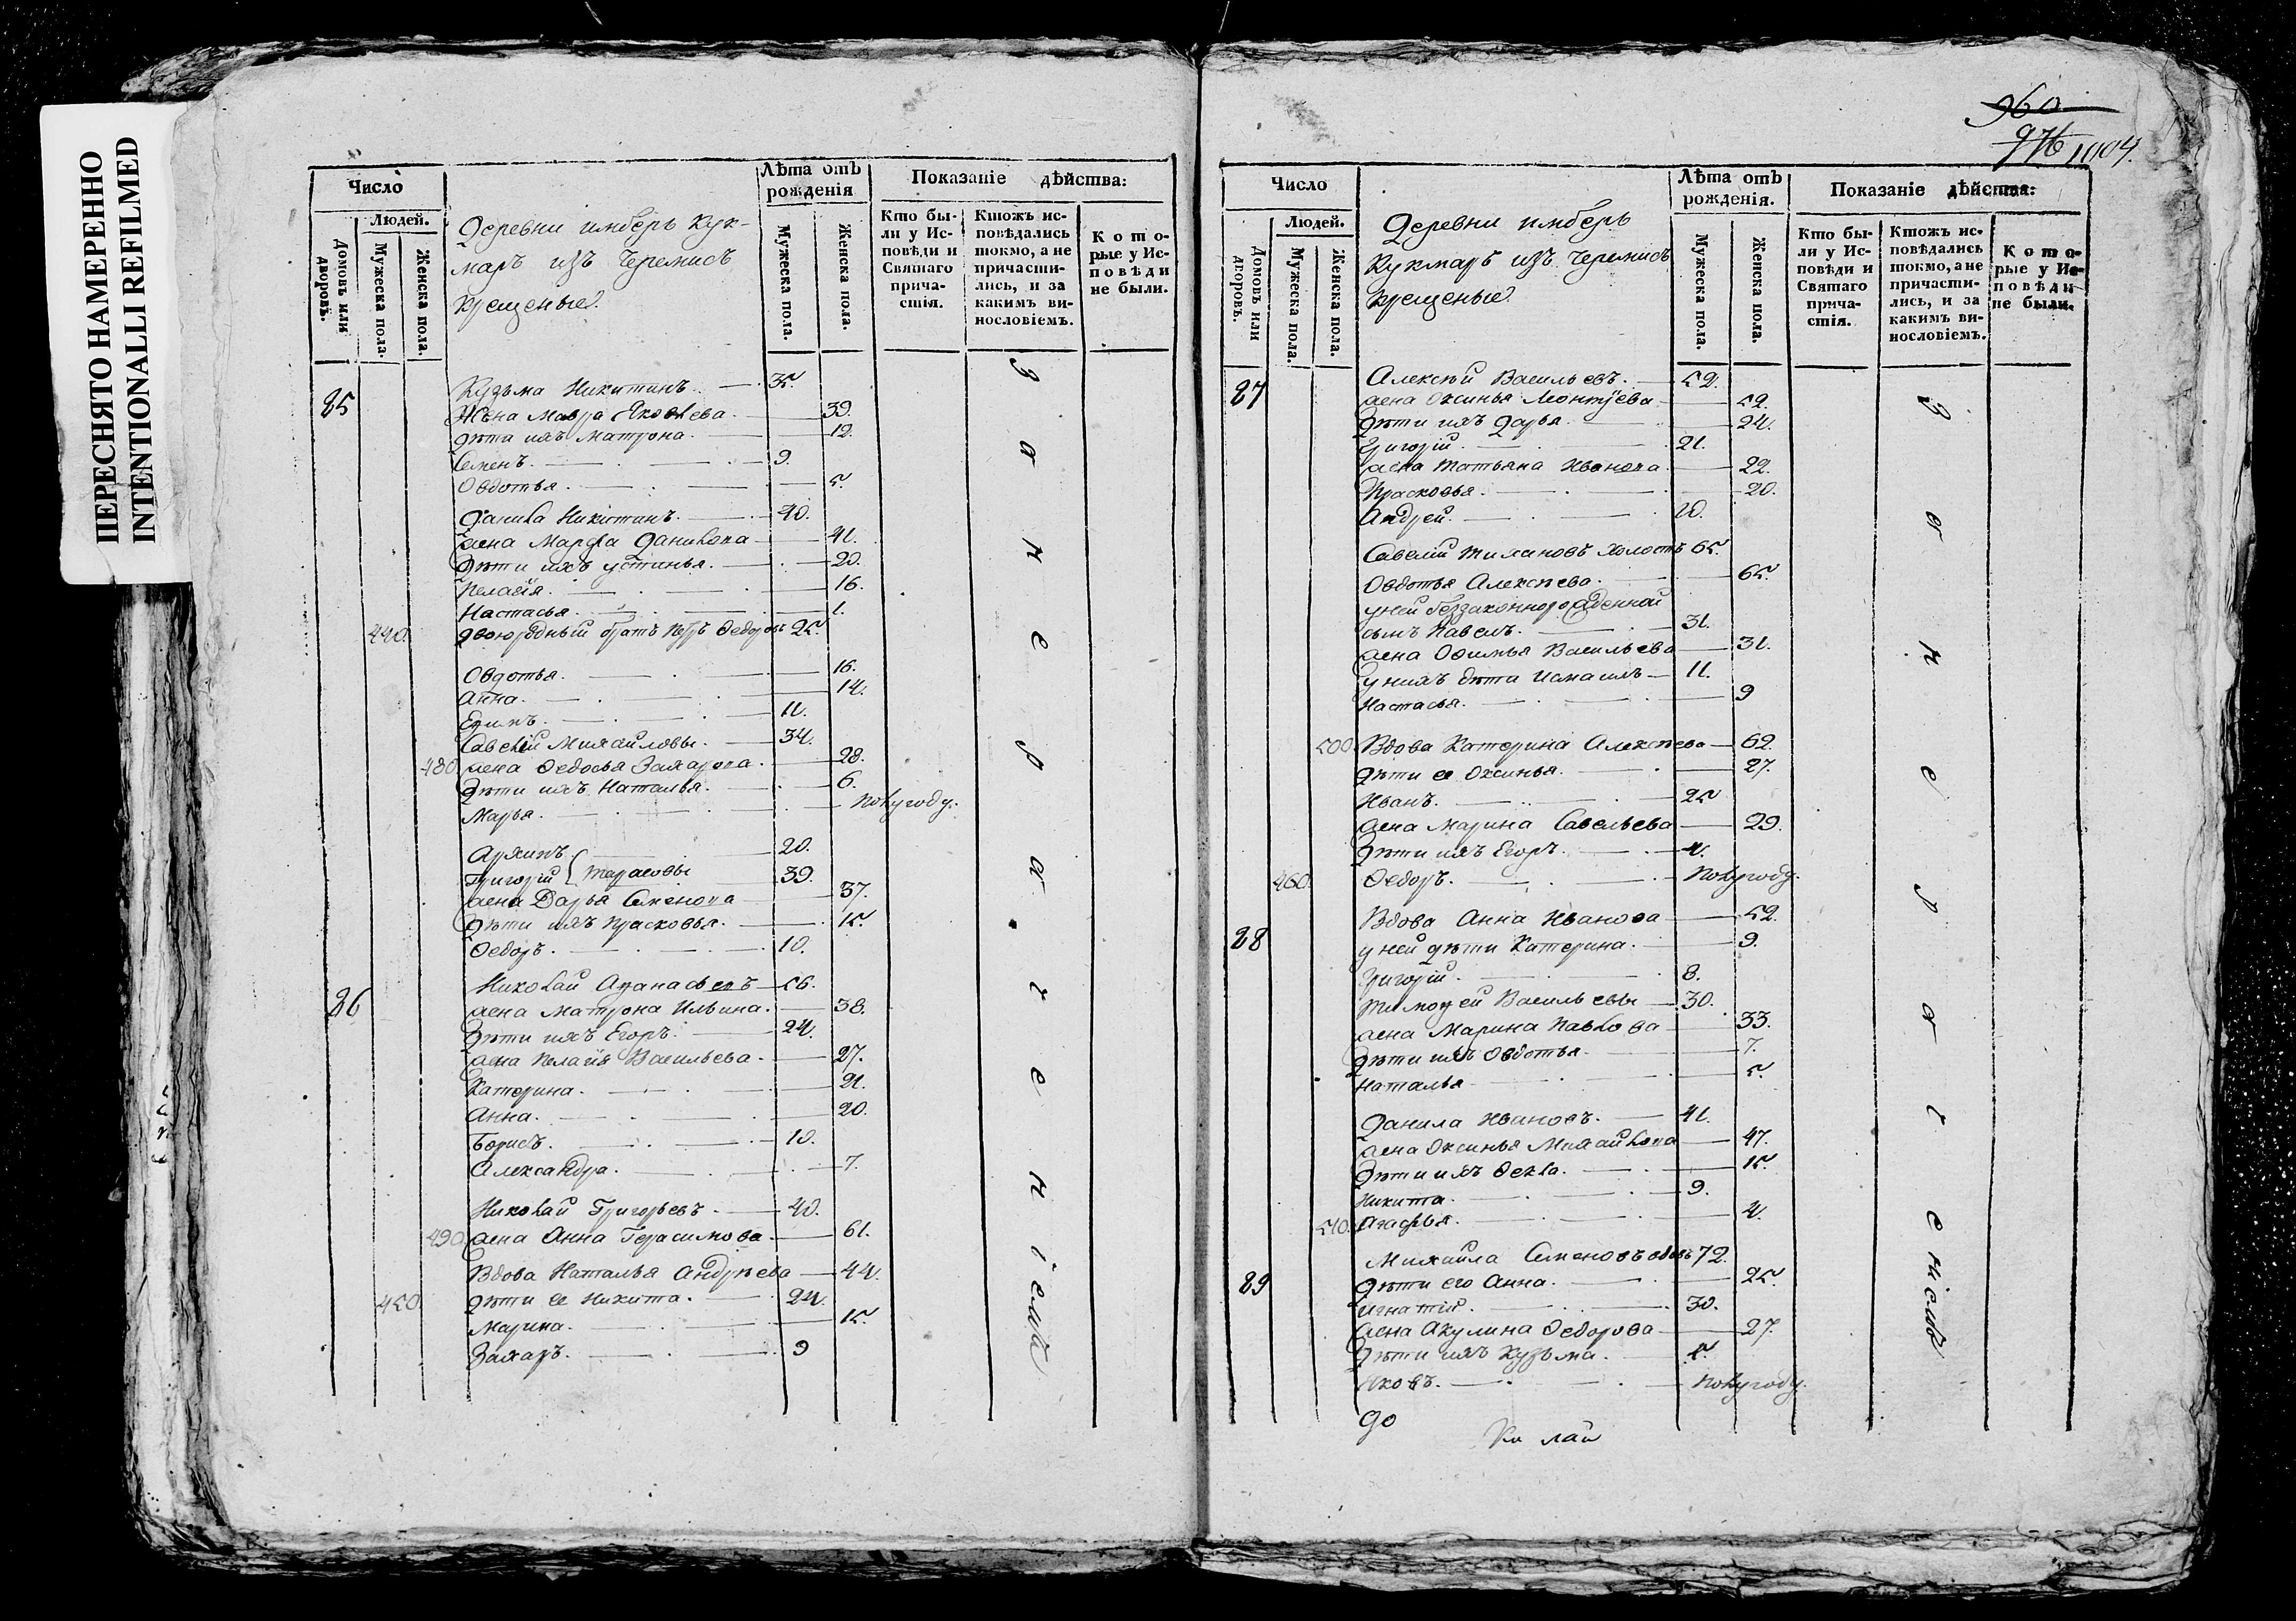 ПЕРЕСНЯТО НАМЕРЕННО
INTENTIONALLI REFILMED
Число
Людей.
Домовъ или дворовъ.
Мужеска пола.
Женска пола.
Деревни имберь Кук-
марь изъ Черемисъ
крещеные.
Лѣта отъ рожденія
Мужеска пола.
Женска пола.
Показаніе дѣйства:
Кто бы-
ли у Ис-
повѣди и
Святаго
прича-
стія.
Ктожъ ис-
повѣдались
токмо, а не
причасти-
лись, и за
какимъ ви-
нословіемъ.
Кото-
рые у Ис-
повѣди
не были.
25 Кузьма Никитинъ. 35
Жена Мавра Яковлева. 39.
дѣти ихъ Матрона. 12.
Семенъ. 9.
Овдотья. 5.
Данила Никитинъ. 40.
жена Марфа Данилова 41.
Дѣти ихъ устинья. 20.
Пелагѣя. 16.
Настасья. 1.
440. двоюродный братъ Петръ Федоровъ 25.
Овдотья. 16.
Анна. 14.
11.
Савелѣй Михайловы. 34.
480. жена Федосья Захарова. 28.
Дѣти ихъ Наталья. 6.
Марья. полугоду.
Архипъ 20.
Григорій Тарасовы 39.
жена Дарья Семенова 37.
Дѣти ихъ Прасковья. 15.
Федоръ. 10.
26 Николай Афанасьевъ 56.
жена Матрона Ильина. 38.
Дѣти ихъ Егоръ. 24.
жена Пелагѣя Васильева. 27.
Катерина. 21.
Анна. 20.
Борисъ. 10.
Александра. 7.
Николай Григорьевъ. 40.
490. жена Анна Герасимова. 61.
Вдова Наталья Андрѣева 44.
450. дѣти ее Никита. 24.
Марина. 15.
Захаръ. 9
За неврачениемъ
960
976
1004.
Число
Людей.
Домовъ или дворовъ.
Мужеска пола.
Женска пола.
Деревни имберь
Кукмарь изъ Черемисъ
крещеные.
Лѣта отъ рожденія.
Мужеска пола.
Женска пола.
Показаніе дѣйства:
Кто бы-
ли у Ис-
повѣди и
Святаго
прича-
стія.
Ктожъ ис-
повѣдались
токмо, а не
причасти-
лись, и за
какимъ ви-
нословіемъ.
Кото-
рые у Ис-
повѣди
не были.
27 Алексѣй Васильевъ. 52.
жена Оксинья 52.
Дѣти ихъ Дарья. 24.
Григорій. 21.
жена Татьяна Иванова. 22.
Прасковья. 20.
Андрей. 10.
Савелій Тихановъ холостъ 65.
Овдотья Алексѣева. 65.
у ней беззаконнорожденной
сынъ Павелъ. 31.
жена Офимья Васильева 31.
у нихъ дѣти Исмаилъ 11.
Настасья. 9
500. Вдова Катерина Алексѣева 62.
дѣти ее Оксинья. 27.
Иванъ. 25
жена Марина Савельева 29.
Дѣти ихъ Егоръ. 4.
460. Федоръ. полугоду.
28 Вдова Анна Иванова 52.
у ней дѣти Катерина. 9.
Григорій. 8.
Тимофей Васильевы 30.
жена Марина Павлова 33.
дѣти ихъ Овдотья. 7.
Наталья 5.
Данила Ивановъ. 41.
жена Оксинья Михайлова 47.
Дѣти ихъ Фекла. 15.
Никита. 9.
510. Агафья. 4.
29 Михайла Семеновъ вдовъ 72.
Дѣти его Анна. 25.
Игнатій. 30.
жена Акулина Федорова 27.
Дѣти ихъ Кузьма. 5.
Яковъ. полугоду.